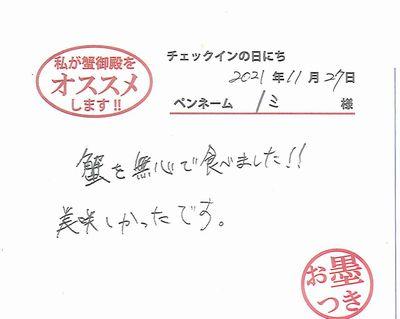 私が蟹御殿を
オススメ
します!!
チェックインの日にち
2021年11月27日
ペンネーム ノミ 様
蟹を無心で食べました!!
美咲しかったです。
お墨
つき